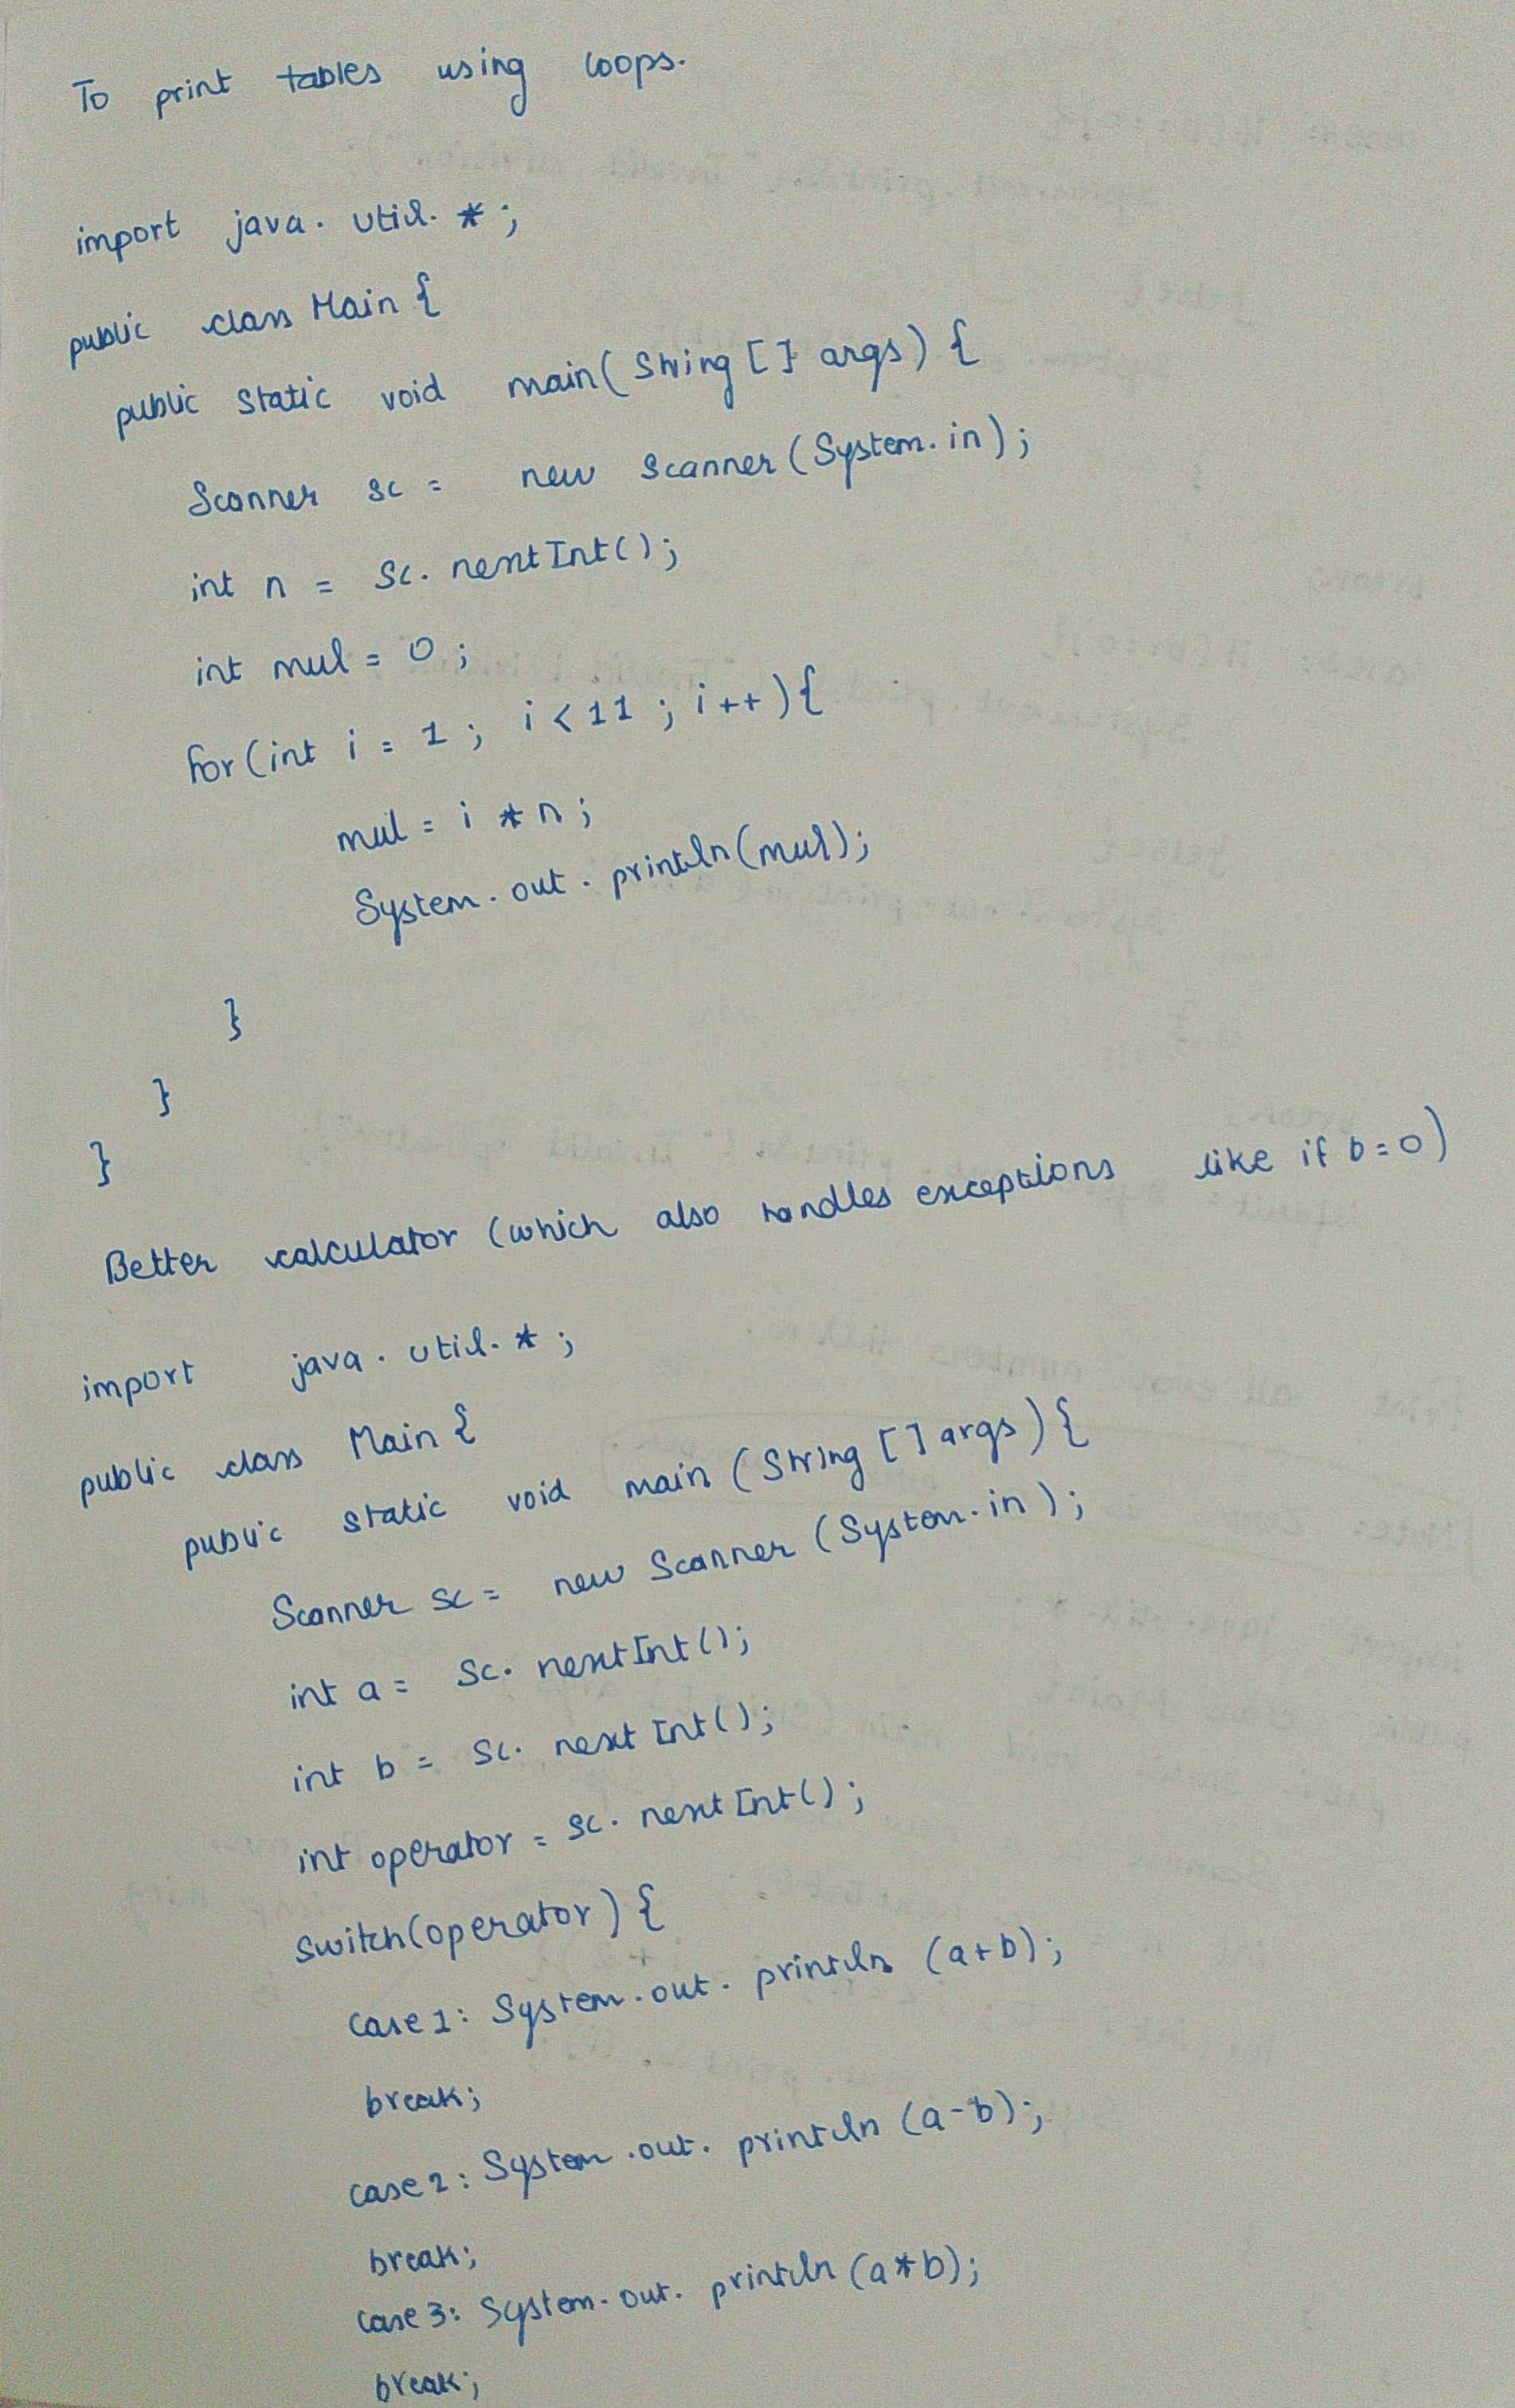 To print tables using loops.
import java.util.*;
public class Main {
public static void main(String [] args) {
Scanner sc = new Scanner(System.in);
int n = sc.nextInt();
int mul = 0;
for(int i = 1; i<11; i++){
mul = i * n;
System.out.println(mul);
}
}
}
Better calculator (which also handles exceptions like if b=0)
import java.util.*;
public class Main {
public static void main (String [] args) {
Scanner sc = new Scanner (System.in);
int a = sc.nextInt();
int b = sc.nextInt();
int operator = sc.nextInt();
switch(operator) {
case 1: System.out.println (a+b);
break;
case 2: System.out.println (a-b);
break;
case 3: System.out.println (a*b);
break;